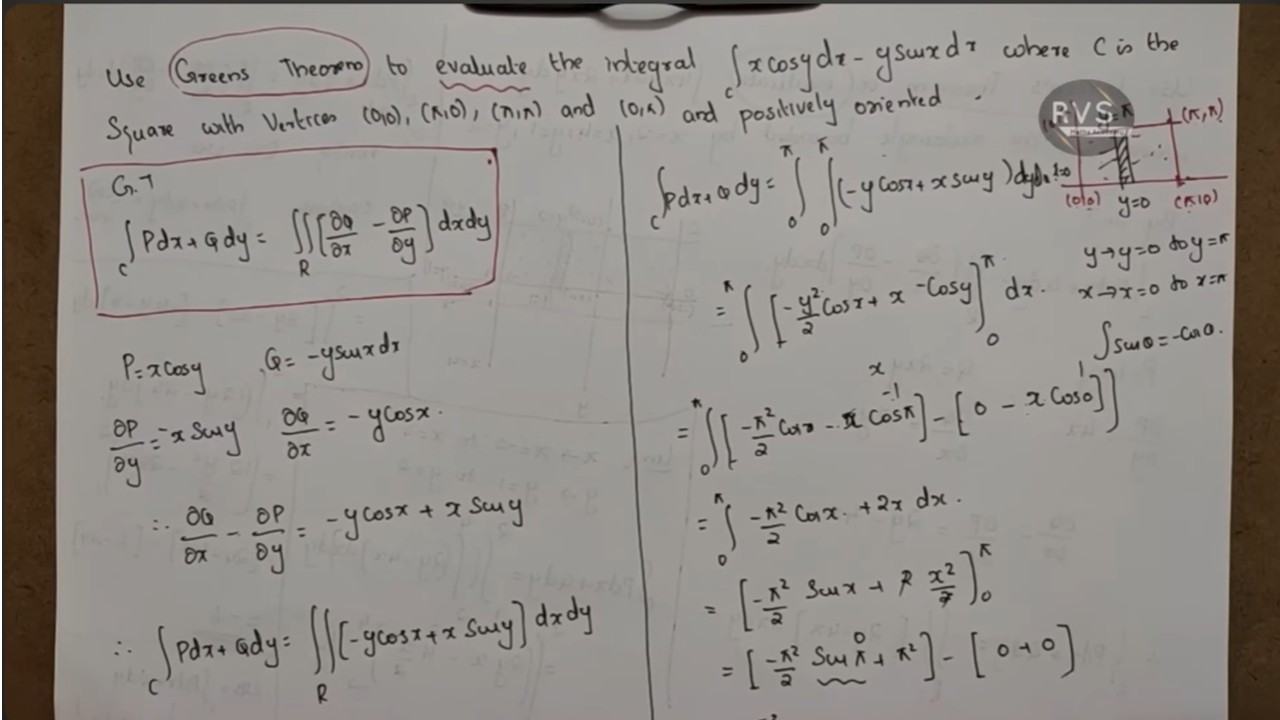 Use Greens Theorem to evaluate the integral ∫_C x cosy dx - y sinx dx where C is the
Square with Vertices (0,0), (π,0), (π,π) and (0,π) and positively oriented.
G.T
∫_C Pdx + Qdy = ∬_R [∂Q/∂x - ∂P/∂y] dxdy
P = x cosy Q = -y sinx dx
∂P/∂y = -x siny ∂Q/∂x = -y cosx.
∴ ∂Q/∂x - ∂P/∂y = -y cosx + x siny
∴ ∫_C Pdx + Qdy = ∬_R [-y cosx + x siny] dxdy
RVS
(π,π)
(0,0) y=0 (π,0)
∫_C Pdx + Qdy = ∫_0^π ∫_0^π (-y cosx + x siny)
y → y=0 to y=π
x → x=0 to x=π
= ∫_0^π [-y²/2 cosx + x -cosy]_0^π dx.
∫ sinθ = -cosθ.
= ∫_0^π [[-π²/2 cosx - x cosπ] - [0 - x cos0]]
x -1 1
= ∫_0^π -π²/2 cosx + 2x dx.
= [-π²/2 sinx + 2 x²/2]_0^π
= [-π²/2 sinπ + π²] - [0+0]
0